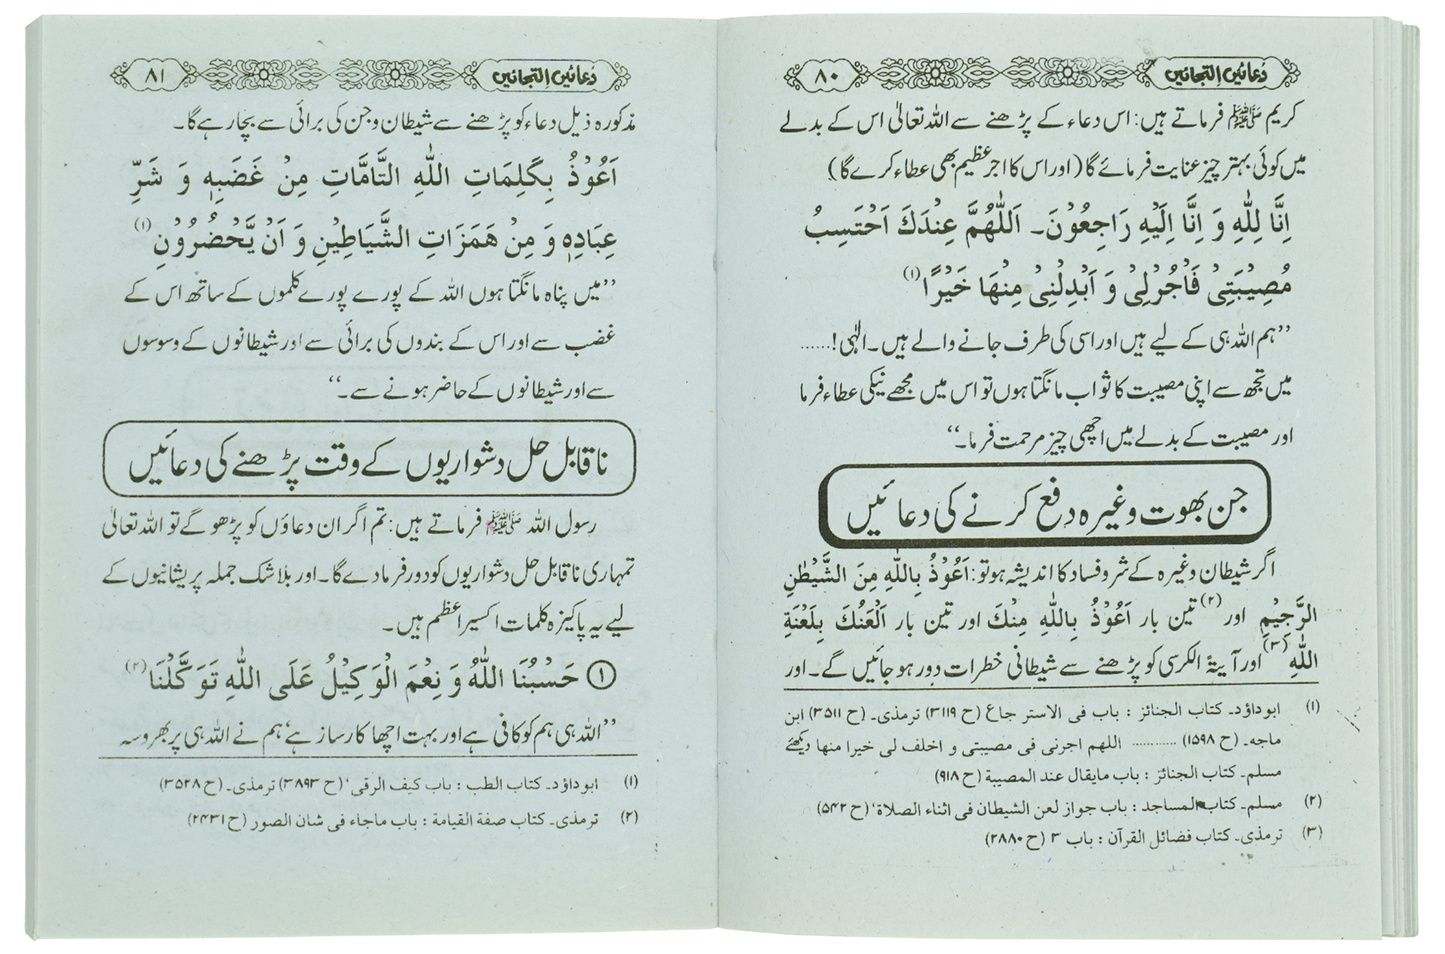 دُعائیں التجائیں ۸۰
کریم ﷺ فرماتے ہیں: اس دعاء کے پڑھنے سے اللہ تعالیٰ اس کے بدلے
میں کوئی بہتر چیز عنایت فرمائے گا (اور اس کا اجر عظیم بھی عطاء کرے گا)
اِنَّا لِلّٰهِ وَ اِنَّا اِلَیْهِ رَاجِعُوْنَ۔ اَللّٰهُمَّ عِنْدَكَ اَحْتَسِبُ
مُصِیْبَتِیْ فَاْجُرْلِیْ وَ اَبْدِلْنِیْ مِنْهَا خَیْرًا(۱)
’’ہم اللہ ہی کے لیے ہیں اور اسی کی طرف جانے والے ہیں۔ الٰہی!......
میں تجھ سے اپنی مصیبت کا ثواب مانگتا ہوں تو اس میں مجھے نیکی عطاء فرما
اور مصیبت کے بدلے میں اچھی چیز مرحمت فرما۔‘‘
جن بھوت وغیرہ دفع کرنے کی دعائیں
اگر شیطان وغیرہ کے شر و فساد کا اندیشہ ہو تو: اَعُوْذُ بِاللّٰهِ مِنَ الشَّیْطٰنِ
الرَّجِیْمِ اور(۲) تین بار اَعُوْذُ بِاللّٰهِ مِنْكَ اور تین بار اَلْعَنُكَ بِلَعْنَةِ
اللّٰهِ(۳) اور آیۃ الکرسی کو پڑھنے سے شیطانی خطرات دور ہو جائیں گے۔ اور
(۱) ابوداؤد۔ کتاب الجنائز : باب فی الاستر جاع (ح ۳۱۱۹) ترمذی۔ (ح ۳۵۱۱) ابن
ماجہ۔ (ح ۱۵۹۸) ........... اللهم اجرنی فی مصیبتی و اخلف لی خیرا منها دیکھئے
مسلم۔ کتاب الجنائز : باب مایقال عند المصیبة (ح ۹۱۸)
(۲) مسلم۔ کتاب المساجد : باب جواز لعن الشیطان فی اثناء الصلاة‘ (ح ۵۴۲)
(۳) ترمذی۔ کتاب فضائل القرآن : باب ۳ (ح ۲۸۸۰)
دُعائیں التجائیں ۸۱
مذکورہ ذیل دعاء کو پڑھنے سے شیطان و جن کی برائی سے بچا رہے گا۔
اَعُوْذُ بِكَلِمَاتِ اللّٰهِ التَّامَّاتِ مِنْ غَضَبِهٖ وَ شَرِّ
عِبَادِهٖ وَ مِنْ هَمَزَاتِ الشَّیَاطِیْنِ وَ اَنْ یَّحْضُرُوْنِ(۱)
’’میں پناہ مانگتا ہوں اللہ کے پورے پورے کلموں کے ساتھ اس کے
غضب سے اور اس کے بندوں کی برائی سے اور شیطانوں کے وسوسوں
سے اور شیطانوں کے حاضر ہونے سے۔‘‘
ناقابل حل دشواریوں کے وقت پڑھنے کی دعائیں
رسول اللہ ﷺ فرماتے ہیں: تم اگر ان دعاؤں کو پڑھو گے تو اللہ تعالیٰ
تمہاری ناقابل حل دشواریوں کو دور فرما دے گا۔ اور بلا شک جملہ پریشانیوں کے
لیے یہ پاکیزہ کلمات اکسیر اعظم ہیں۔
① حَسْبُنَا اللّٰهُ وَ نِعْمَ الْوَكِیْلُ عَلَی اللّٰهِ تَوَكَّلْنَا(۲)
’’اللہ ہی ہم کو کافی ہے اور بہت اچھا کارساز ہے‘ ہم نے اللہ ہی پر بھروسہ
(۱) ابوداؤد۔ کتاب الطب : باب کیف الرقی‘ (ح ۳۸۹۳) ترمذی۔ (ح ۳۵۲۸)
(۲) ترمذی۔ کتاب صفة القیامة : باب ماجاء فی شان الصور (ح ۲۴۳۱)